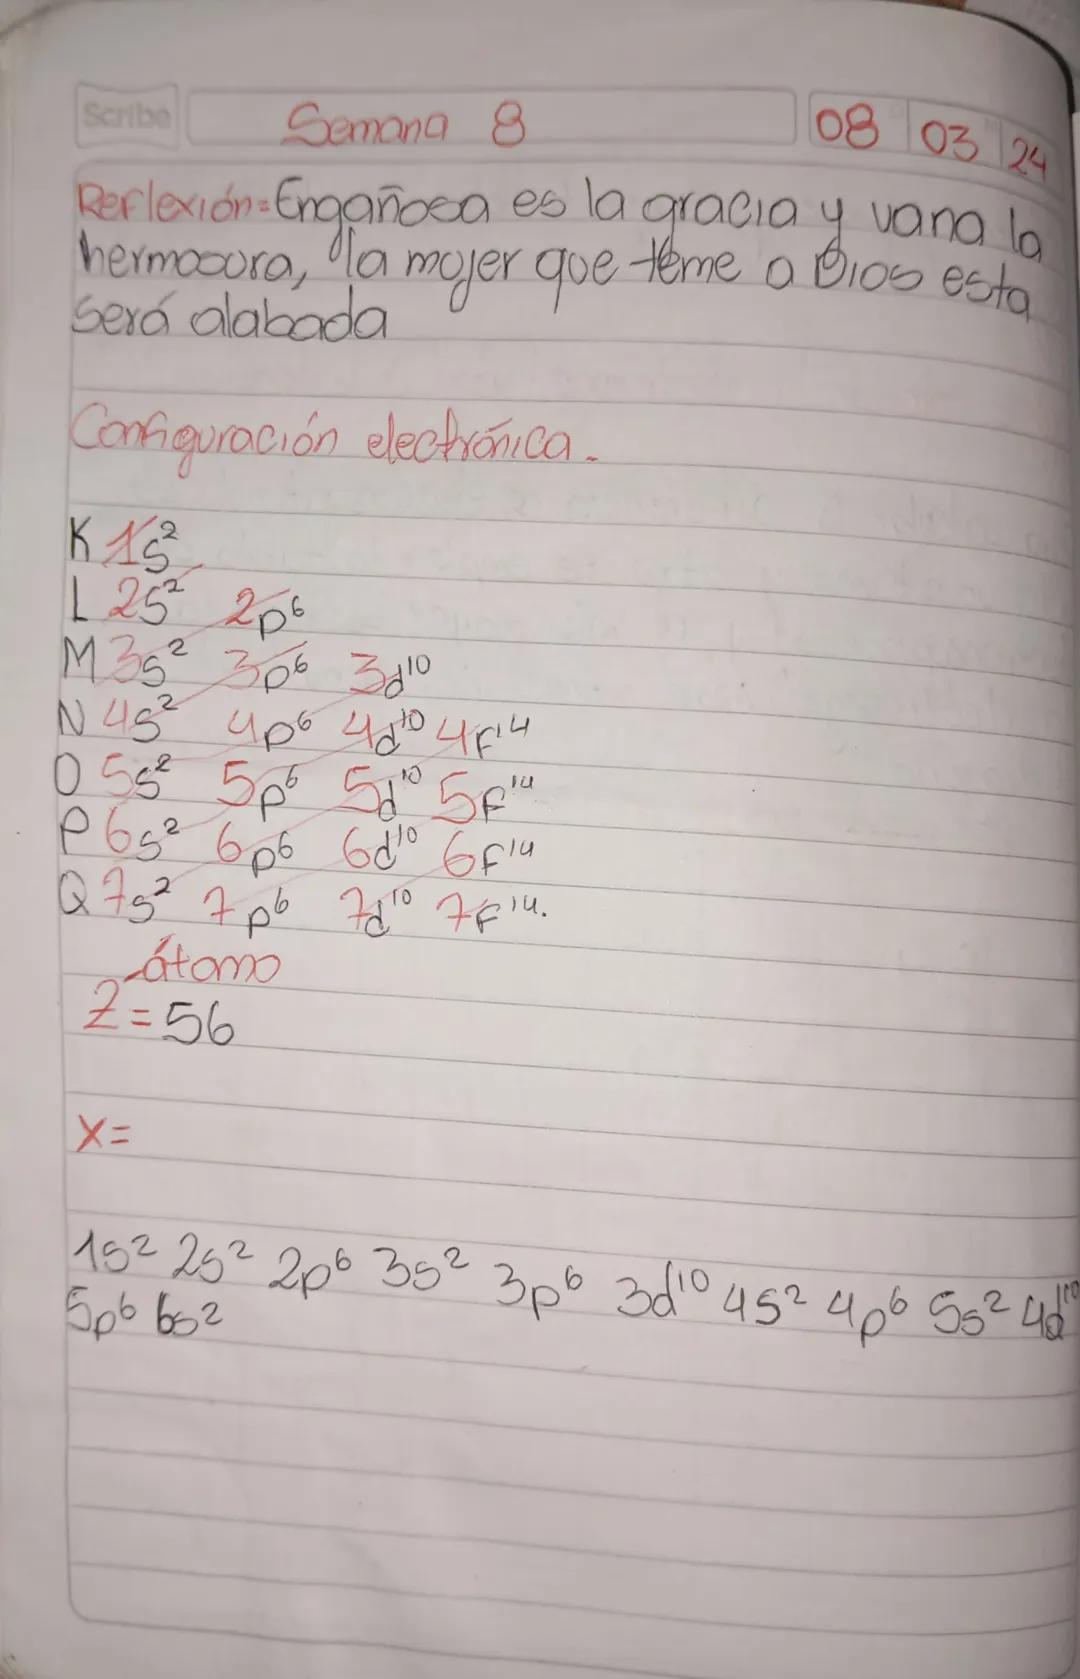 Scribe
Semana 8
08 03 24
Reflexión=Engañosa es la gracia y vana la
hermosura, la mujer que teme a Dios esta
será alabada
Configuración electrónica.
K 1s²
L 2s² 2p⁶
M 3s² 3p⁶ 3d¹⁰
N 4s² 4p⁶ 4d¹⁰ 4f¹⁴
O 5s² 5p⁶ 5d¹⁰ 5f¹⁴
P 6s² 6p⁶ 6d¹⁰ 6f¹⁴
Q 7s² 7p⁶ 7d¹⁰ 7f¹⁴.
átomo
Z=56
X=
1s² 2s² 2p⁶ 3s² 3p⁶ 3d¹⁰ 4s² 4p⁶ 5s² 4d¹⁰
5p⁶ 6s²